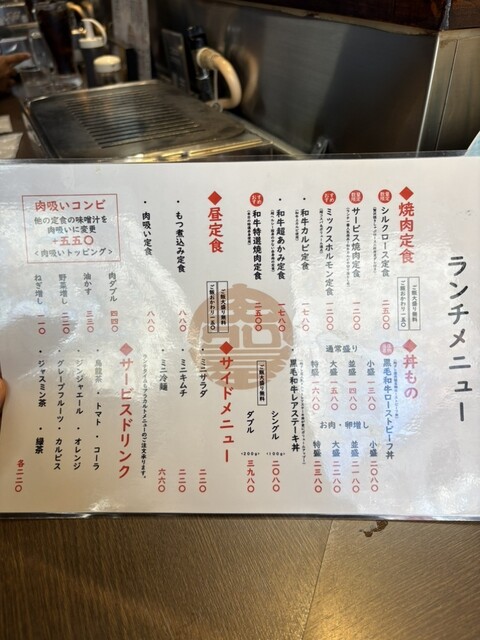 ランチメニュー
◆焼肉定食
ご飯大盛り無料
ご飯おかわり一五〇
シルクロース定食 二五〇〇
サービス焼肉定食 一二〇〇
ミックスホルモン定食 二二〇〇
・和牛カルビ定食 一七八〇
・和牛超あかみ定食 一七八〇
和牛特選焼肉定食 二五〇〇
◆昼定食
ご飯大盛り無料
ご飯おかわり一五〇
・もつ煮込み定食 八八〇
・肉吸い定食 八八〇
肉吸いコンビ
他の定食の味噌汁を
肉吸いに変更
+五五〇
<肉吸いトッピング>
肉ダブル 四四〇
油かす 三三〇
野菜増し 二二〇
ねぎ増し 一一〇
◆丼もの
黒毛和牛ローストビーフ丼
通常盛り
小盛 一三八〇
並盛 一四八〇
大盛 一五八〇
特盛 一六八〇
お肉・卵増し
小盛 二〇八〇
並盛 二一八〇
大盛 二二八〇
特盛 二三八〇
・黒毛和牛レアステーキ丼
ご飯大盛り無料
シングル <100g> 二〇八〇
ダブル <200g> 三九八〇
◆サイドメニュー
・ミニサラダ 二二〇
・ミニキムチ 二二〇
・ミニ冷麺 六六〇
◆サービスドリンク
・烏龍茶 ・トマト ・コーラ
・ジンジャエール ・オレンジ
・グレープフルーツ ・カルピス
・ジャスミン茶 ・緑茶
各二二〇